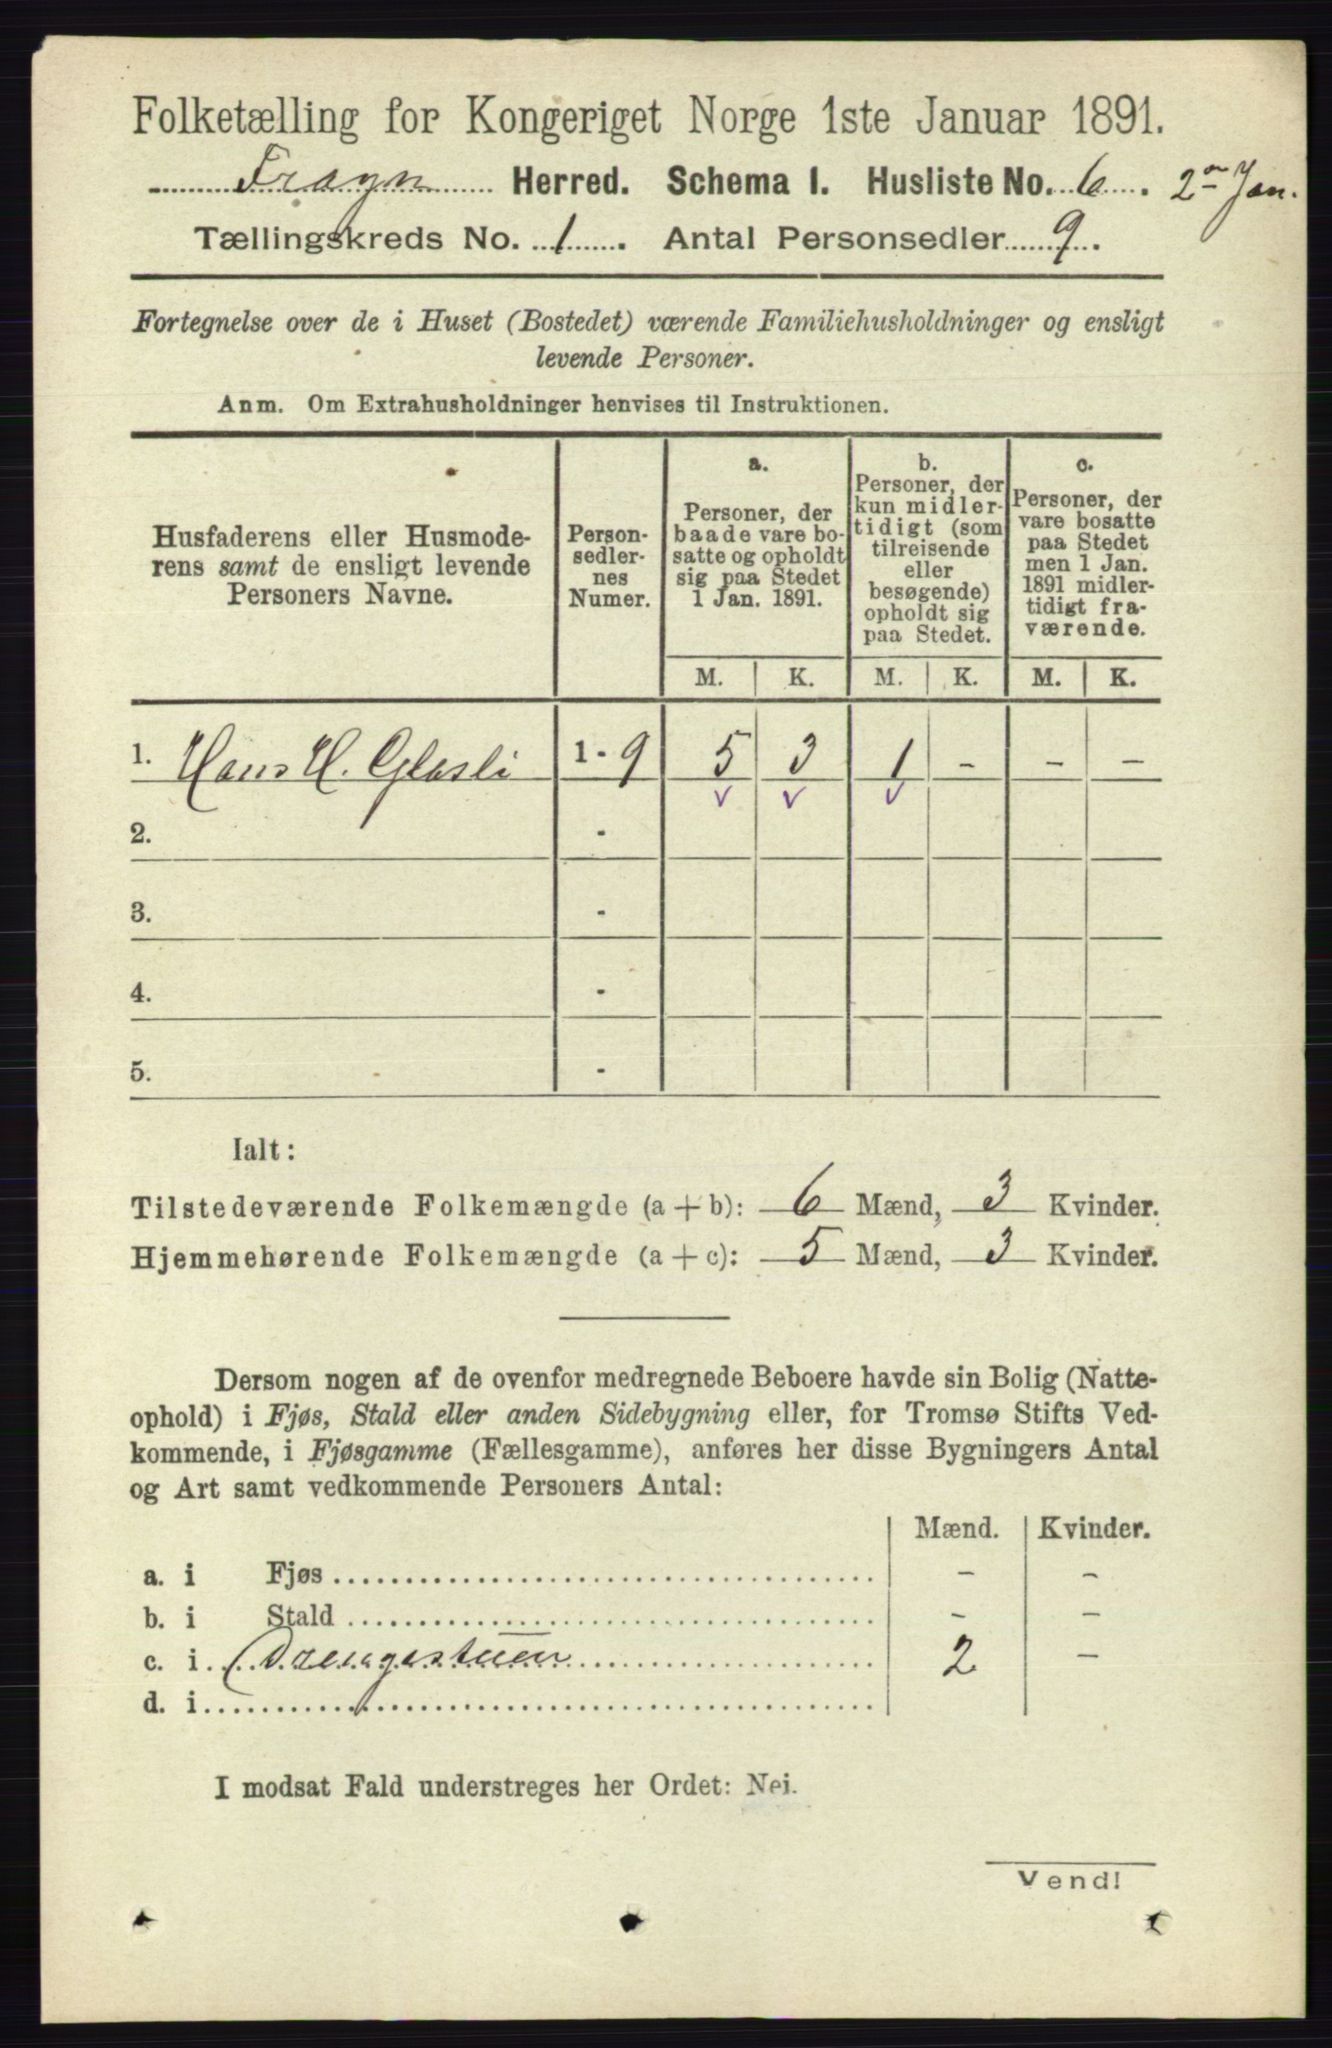 Folketælling for Kongeriget Norge 1ste Januar 1891.
Frogn Herred. Schema I. Husliste No. 6. 2en Jan.
Tællingskreds No. 1. Antal Personsedler 9.
Fortegnelse over de i Huset (Bostedet) værende Familiehusholdninger og ensligt
levende Personer.
Anm. Om Extrahusholdninger henvises til Instruktionen.
Husfaderens eller Husmode-
rens samt de ensligt levende
Personers Navne.
Person-
sedler-
nes
Numer.
a.
Personer, der
baade vare bo-
satte og opholdt
sig paa Stedet
1 Jan. 1891.
b.
Personer, der
kun midler-
tidigt (som
tilreisende
eller
besøgende)
opholdt sig
paa Stedet.
c.
Personer, der
vare bosatte
paa Stedet
men 1 Jan.
1891 midler-
tidigt fra-
værende.
M. K. M. K. M. K.
1. Hans H. Glasli 1 - 9 5 3 1 - - -
v v v
2. -
3. -
4. -
5. -
Ialt:
Tilstedeværende Folkemængde (a + b): 6 Mænd, 3 Kvinder.
Hjemmehørende Folkemængde (a + c): 5 Mænd, 3 Kvinder.
Dersom nogen af de ovenfor medregnede Beboere havde sin Bolig (Natte-
ophold) i Fjøs, Stald eller anden Sidebygning eller, for Tromsø Stifts Ved-
kommende, i Fjøsgamme (Fællesgamme), anføres her disse Bygningers Antal
og Art samt vedkommende Personers Antal:
Mænd. Kvinder.
a. i Fjøs - -
b. i Stald - -
c. i Drengestuen 2 -
d. i
I modsat Fald understreges her Ordet: Nei.
Vend!